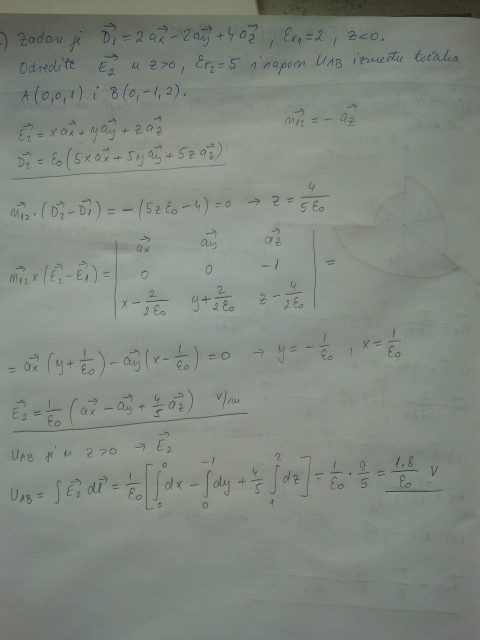 ) Zadan je D₁⃗ = 2ax⃗ - 2ay⃗ + 4az⃗ , εr₁ = 2 , z<0.
Odredite E₂⃗ u z>0, εr₂ = 5 i napon UAB između točaka
A(0,0,1) i B(0,-1,2).
E₂⃗ = xax⃗ + yay⃗ + zaz⃗
n₁₂⃗ = - az⃗
D₂⃗ = ε₀(5xax⃗ + 5yay⃗ + 5zaz⃗)
n₁₂⃗ · (D₂⃗ - D₁⃗) = -(5zε₀ - 4) = 0 → z = 4/5ε₀
n₁₂⃗ x (E₂⃗ - E₁⃗) = | ax⃗ ay⃗ az⃗ |
| 0 0 -1 | =
| x - 2/2ε₀ y + 2/2ε₀ z - 4/2ε₀ |
= ax⃗ (y + 1/ε₀) - ay⃗ (x - 1/ε₀) = 0 → y = - 1/ε₀ , x = 1/ε₀
E₂⃗ = 1/ε₀ (ax⃗ - ay⃗ + 4/5 az⃗) V/m
UAB je u z>0 → E₂⃗
UAB = ∫ E₂⃗ dl⃗ = 1/ε₀ [∫₀⁰ dx - ∫₀⁻¹ dy + 4/5 ∫₁² dz] = 1/ε₀ · 9/5 = 1.8/ε₀ V